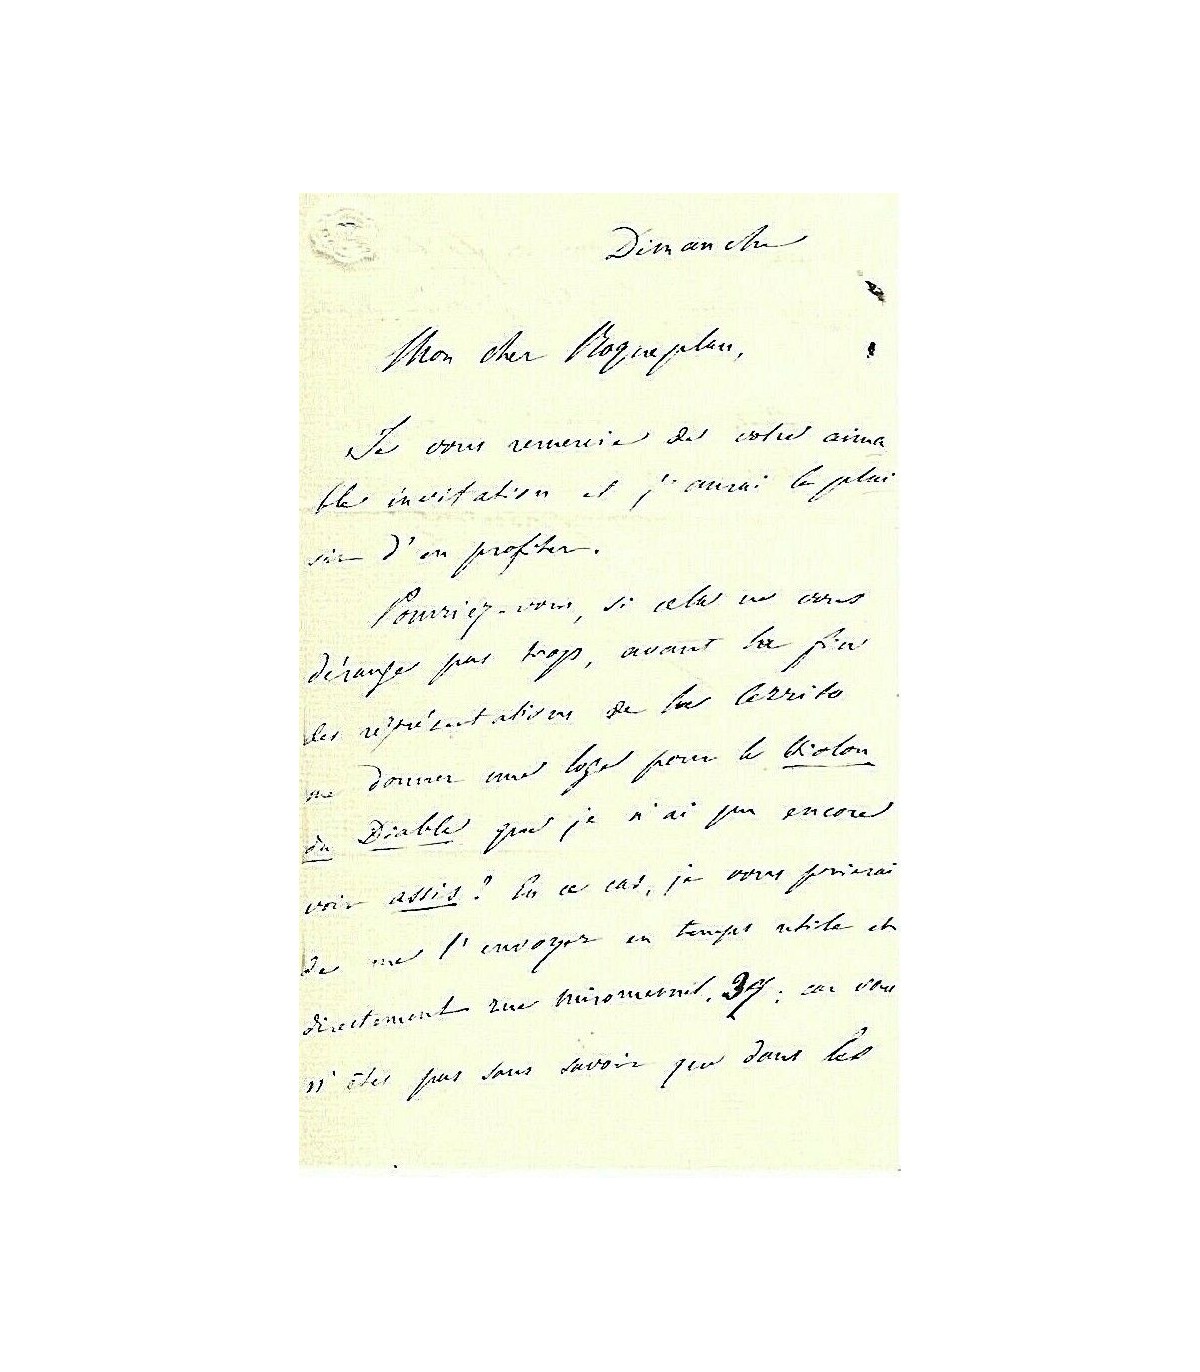 Dimanche
Mon cher Roqueplan,
Je vous remercie de votre aima
ble invitation et j'aurai le plai
sir d'en profiter.
Pourriez-vous, si cela ne vous
dérange pas trop, avant la fin
des représentations de la Cerrito
me donner une loge pour le Violon
du Diable que je n'ai pu encore
voir assis? En ce cas, je vous prierai
de me l'envoyer en temps utile et
directement rue Miromesnil, 37; car vous
n'êtes pas sans savoir que dans les